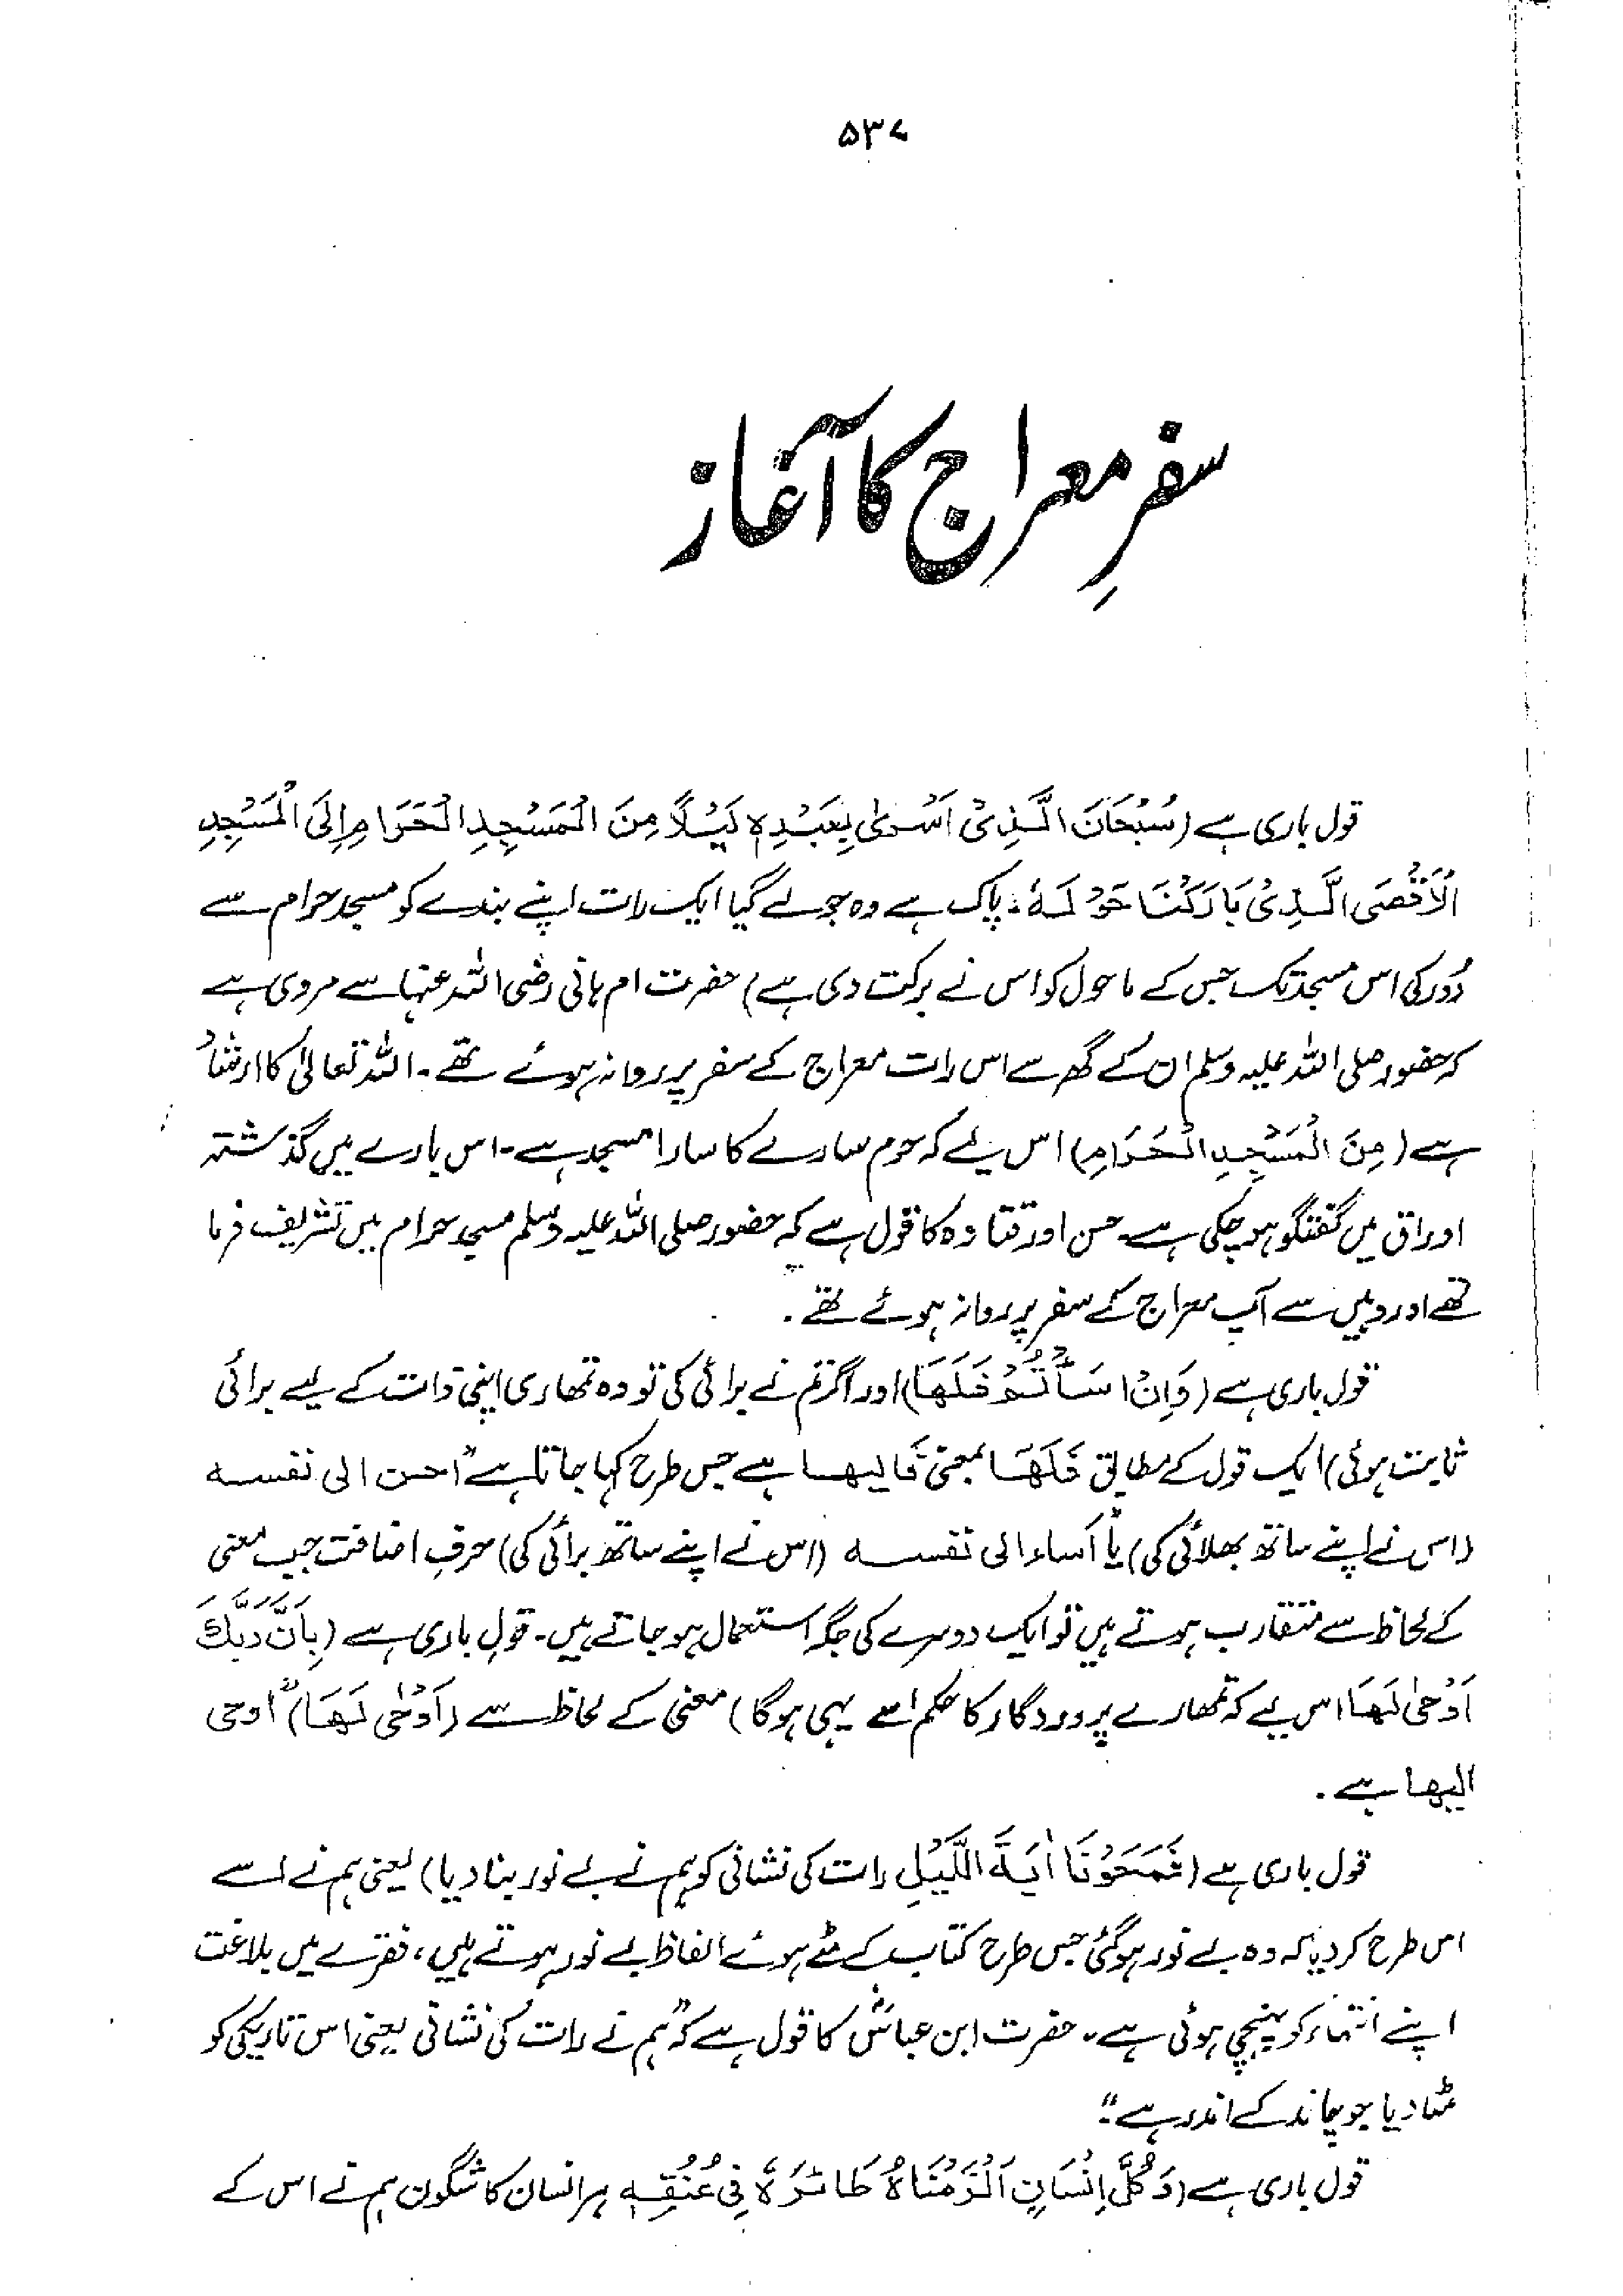 ۵۳۷
سفرِ معراج کا آغاز
قول باری ہے (سُبْحَانَ الَّذِیْ اَسْرٰی بِعَبْدِہٖ لَیْلًا مِنَ الْمَسْجِدِ الْحَرَامِ اِلَی الْمَسْجِدِ
الْاَقْصَی الَّذِیْ بَارَکْنَا حَوْلَہٗ۔ پاک ہے وہ جو لے گیا ایک رات اپنے بندے کو مسجد حرام سے
دُور کی اس مسجد تک جس کے ماحول کو اس نے برکت دی ہے) حضرت ام ہانی رضی اللہ عنہا سے مروی ہے
کہ حضور صلی اللہ علیہ وسلم ان کے گھر سے اس رات معراج کے سفر پر روانہ ہوئے تھے۔ اللہ تعالیٰ کا ارشاد
ہے (مِنَ الْمَسْجِدِ الْحَرَامِ) اس لیے کہ حرم سارے کا سارا مسجد ہے۔ اس بارے میں گذشتہ
اوراق میں گفتگو ہو چکی ہے۔ حسن اور قتادہ کا قول ہے کہ حضور صلی اللہ علیہ وسلم مسجد حرام میں تشریف فرما
تھے اور وہیں سے آپ معراج کے سفر پر روانہ ہوئے تھے۔
قول باری ہے (وَاِنْ اَسَأْتُمْ فَلَهَا) اور اگر تم نے برائی کی تو وہ تمھاری اپنی ذات کے لیے برائی
ثابت ہوئی) ایک قول کے مطابق فَلَهَا بمعنی فَالیھا ہے جس طرح کہا جاتا ہے "احسن الی نفسہ
(اس نے اپنے ساتھ بھلائی کی) یا اَساء الی نفسہ (اس نے اپنے ساتھ برائی کی) حرفِ اضافت جب معنی
کے لحاظ سے متقارب ہوتے ہیں تو ایک دوسرے کی جگہ استعمال ہو جاتے ہیں۔ قولِ باری ہے (بِاَنَّ رَبَّكَ
اَوْحٰی لَهَا اس لیے کہ تمھارے پروردگار کا حکم اسے یہی ہوگا) معنی کے لحاظ سے (اَوْحٰی لَهَا) "اوحی
الیھا ہے۔
قول باری ہے (فَمَحَوْنَا اٰیَةَ اللَّیْلِ رات کی نشانی کو ہم نے بے نور بنا دیا) یعنی ہم نے اسے
اس طرح کر دیا کہ وہ بے نور ہوگئی جس طرح کتاب کے مٹے ہوئے الفاظ بے نور ہوتے ہیں، فقرے میں بلاغت
اپنے انتہاء کو پہنچی ہوئی ہے۔ حضرت ابن عباسؓ کا قول ہے کہ "ہم نے رات کی نشانی یعنی اس تاریکی کو
مٹا دیا جو چاند کے اندر ہے"۔
قول باری ہے (وَکُلَّ اِنْسَانٍ اَلْزَمْنَاهُ طَائِرَهٗ فِیْ عُنُقِہٖ ہر انسان کا شگون ہم نے اس کے